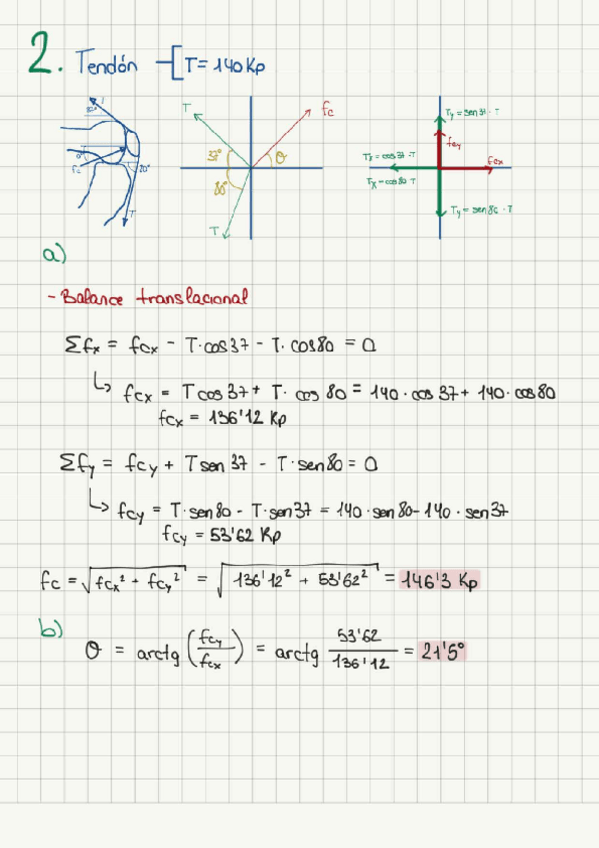 2. Tendón T = 140 Kp
T
fc
37°
θ
80°
T
Ty = sen 37 · T
fcy
Tx = cos 37 · T
fcx
Tx = cos 80 · T
Ty = sen 80 · T
fc
20°
T
a)
- Balance translacional
Σfx = fcx - T·cos37 - T·cos80 = 0
↳ fcx = Tcos37 + T·cos 80 = 140·cos 37 + 140·cos80
fcx = 136'12 Kp
Σfy = fcy + Tsen 37 - T·sen80 = 0
↳ fcy = T·sen80 - T·sen37 = 140·sen80 - 140·sen37
fcy = 53'62 Kp
fc = √fcx² + fcy² = √136'12² + 53'62² = 146'3 Kp
b)
θ = arctg (fcy/fcx) = arctg 53'62/136'12 = 21'5°